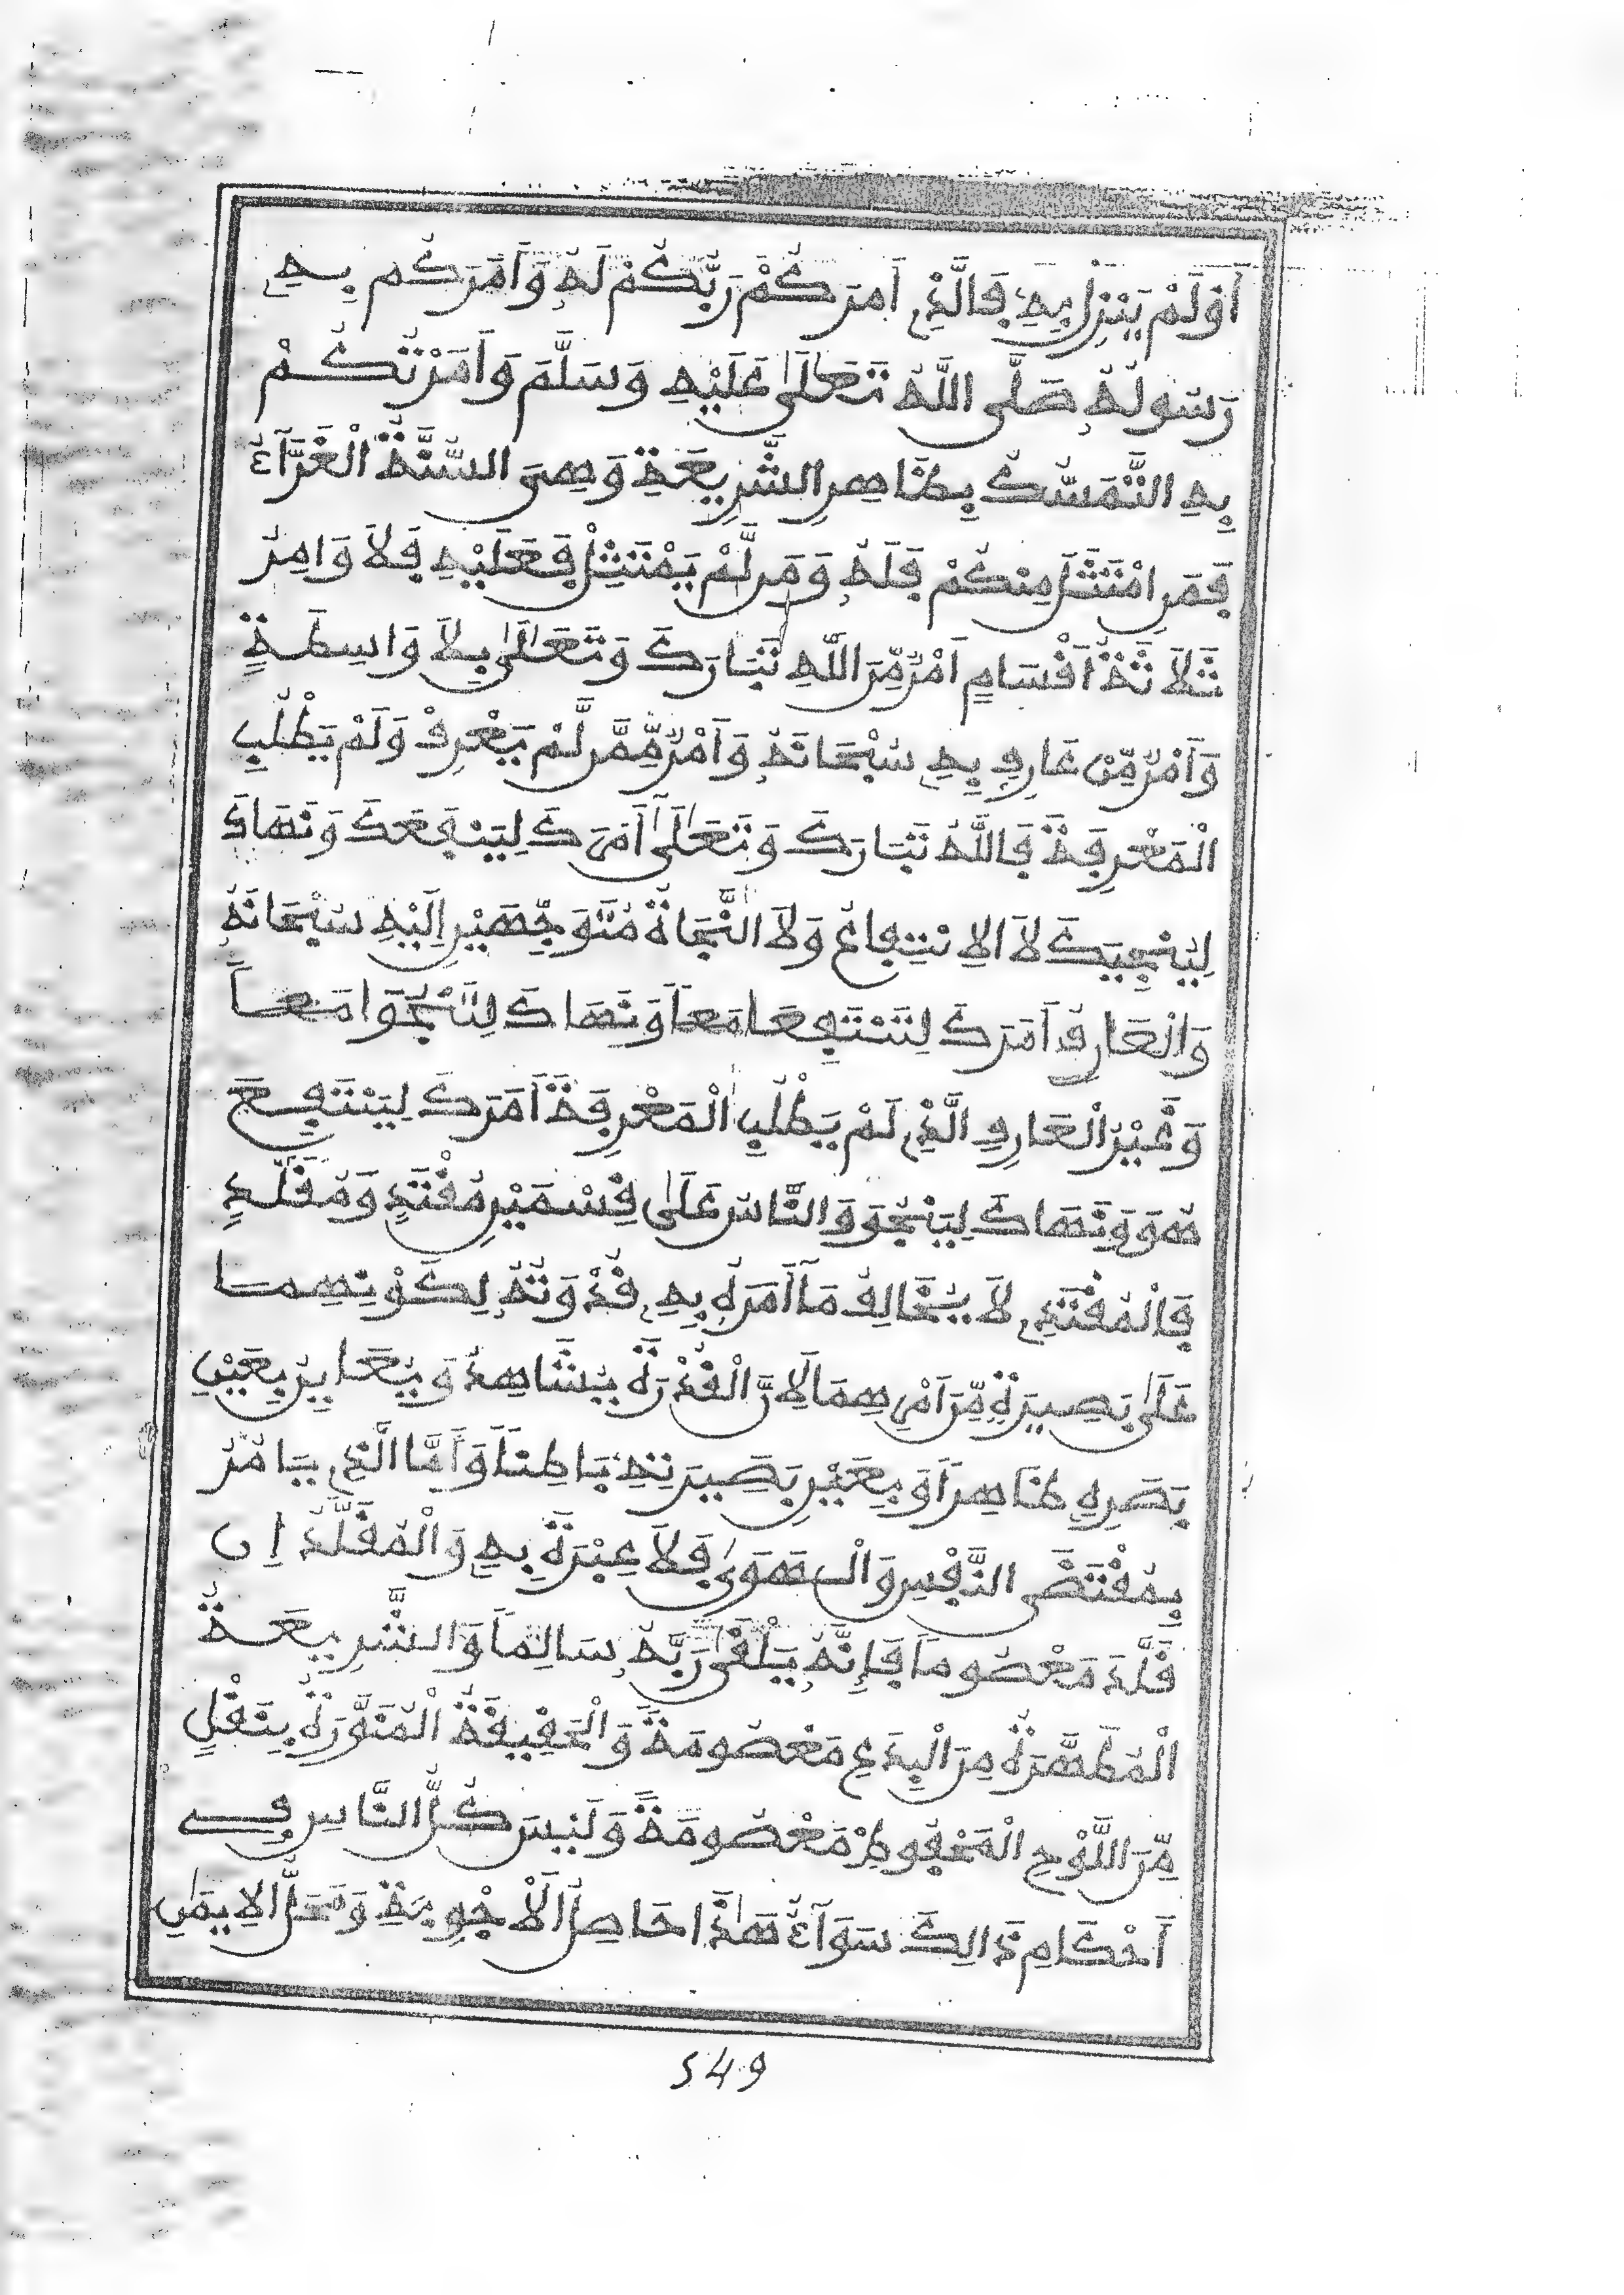 أَوْ لَمْ يَنزِلْ بِهِ فَالَّذِي أَمَرَكُمْ رَبُّكُمْ لَهُ وَأَمَرَكُم بِهِ
رَسُولُهُ صَلَّى اللَّهُ تَعَالَى عَلَيْهِ وَسَلَّمَ وَأَمَرْتُكُمْ
بِهِ التَّمَسُّكُ بِظَاهِرِ الشَّرِيعَةِ وَهِيَ السُّنَّةُ الْغَرَّاءُ
فَمَنِ امْتَثَلَ مِنكُمْ فَلَهُ وَمَن لَّمْ يَمْتَثِلْ فَعَلَيْهِ فَلَا وَامِرُ
ثَلَاثَةُ أَقْسَامٍ أَمْرٌ مِّنَ اللَّهِ تَبَارَكَ وَتَعَالَى بِلَا وَاسِطَةٍ
وَأَمْرٌ مِّنْ عَارِفٍ بِهِ سُبْحَانَهُ وَأَمْرٌ مِّمَّن لَّمْ يَعْرِفْ وَلَمْ يَطْلُبِ
الْمَعْرِفَةَ فَاللَّهُ تَبَارَكَ وَتَعَالَى أَمَرَكَ لِيَنْفَعَكَ وَنَهَاكَ
لِيُنْجِيَكَ لَا الِانْتِفَاعُ وَلَا النَّجَاةُ مُتَوَجِّهَيْنِ إِلَيْهِ سُبْحَانَهُ
وَالْعَارِفُ أَمَرَكَ لِتَنْتَفِعَا مَعاً وَنَهَاكَ لِتَنْجُوَا مَعاً
وَغَيْرُ الْعَارِفِ الَّذِي لَمْ يَطْلُبِ الْمَعْرِفَةَ أَمَرَكَ لِيَنْتَفِعَ
هُوَ وَنَهَاكَ لِيَنْجُوَ وَالنَّاسُ عَلَى قِسْمَيْنِ مُقْتَدٍ وَمُقَلِّدٍ
فَالْمُقْتَدِي لَا يُخَالِفُ مَا أَمَرَهُ بِهِ قُدْوَتُهُ لِكَوْنِهِمَا
عَلَى بَصِيرَةٍ مِّنْ أَمْرِهِمَا لِأَنَّ الْقُدْرَةَ يُشَاهِدُ وَيُعَايِنُ بِعَيْنِ
بَصَرِهِ ظَاهِراً وَبِعَيْنِ بَصِيرَتِهِ بَاطِناً وَأَمَّا الَّذِي يَأْمُرُ
بِمُقْتَضَى النَّفْسِ وَالْهَوَى فَلَا عِبْرَةَ بِهِ وَالْمُقَلِّدُ إِن
قَلَّدَ مَعْصُوماً فَإِنَّهُ يَلْقَى رَبَّهُ سَالِماً وَالشَّرِيعَةُ
الْمُطَهَّرَةُ مِنَ الْبِدَعِ مَعْصُومَةٌ وَالْحَقِيقَةُ الْمُنَوَّرَةُ بِنَقْلٍ
مِّنَ اللَّوْحِ الْمَحْفُوظِ مَعْصُومَةٌ وَلَيْسَ كُلُّ النَّاسِ فِي
أَحْكَامِ ذَالِكَ سَوَاءٌ هَذَا حَاصِلُ الْأَجْوِبَةِ وَمَحَلُّ الِايمَانِ
549